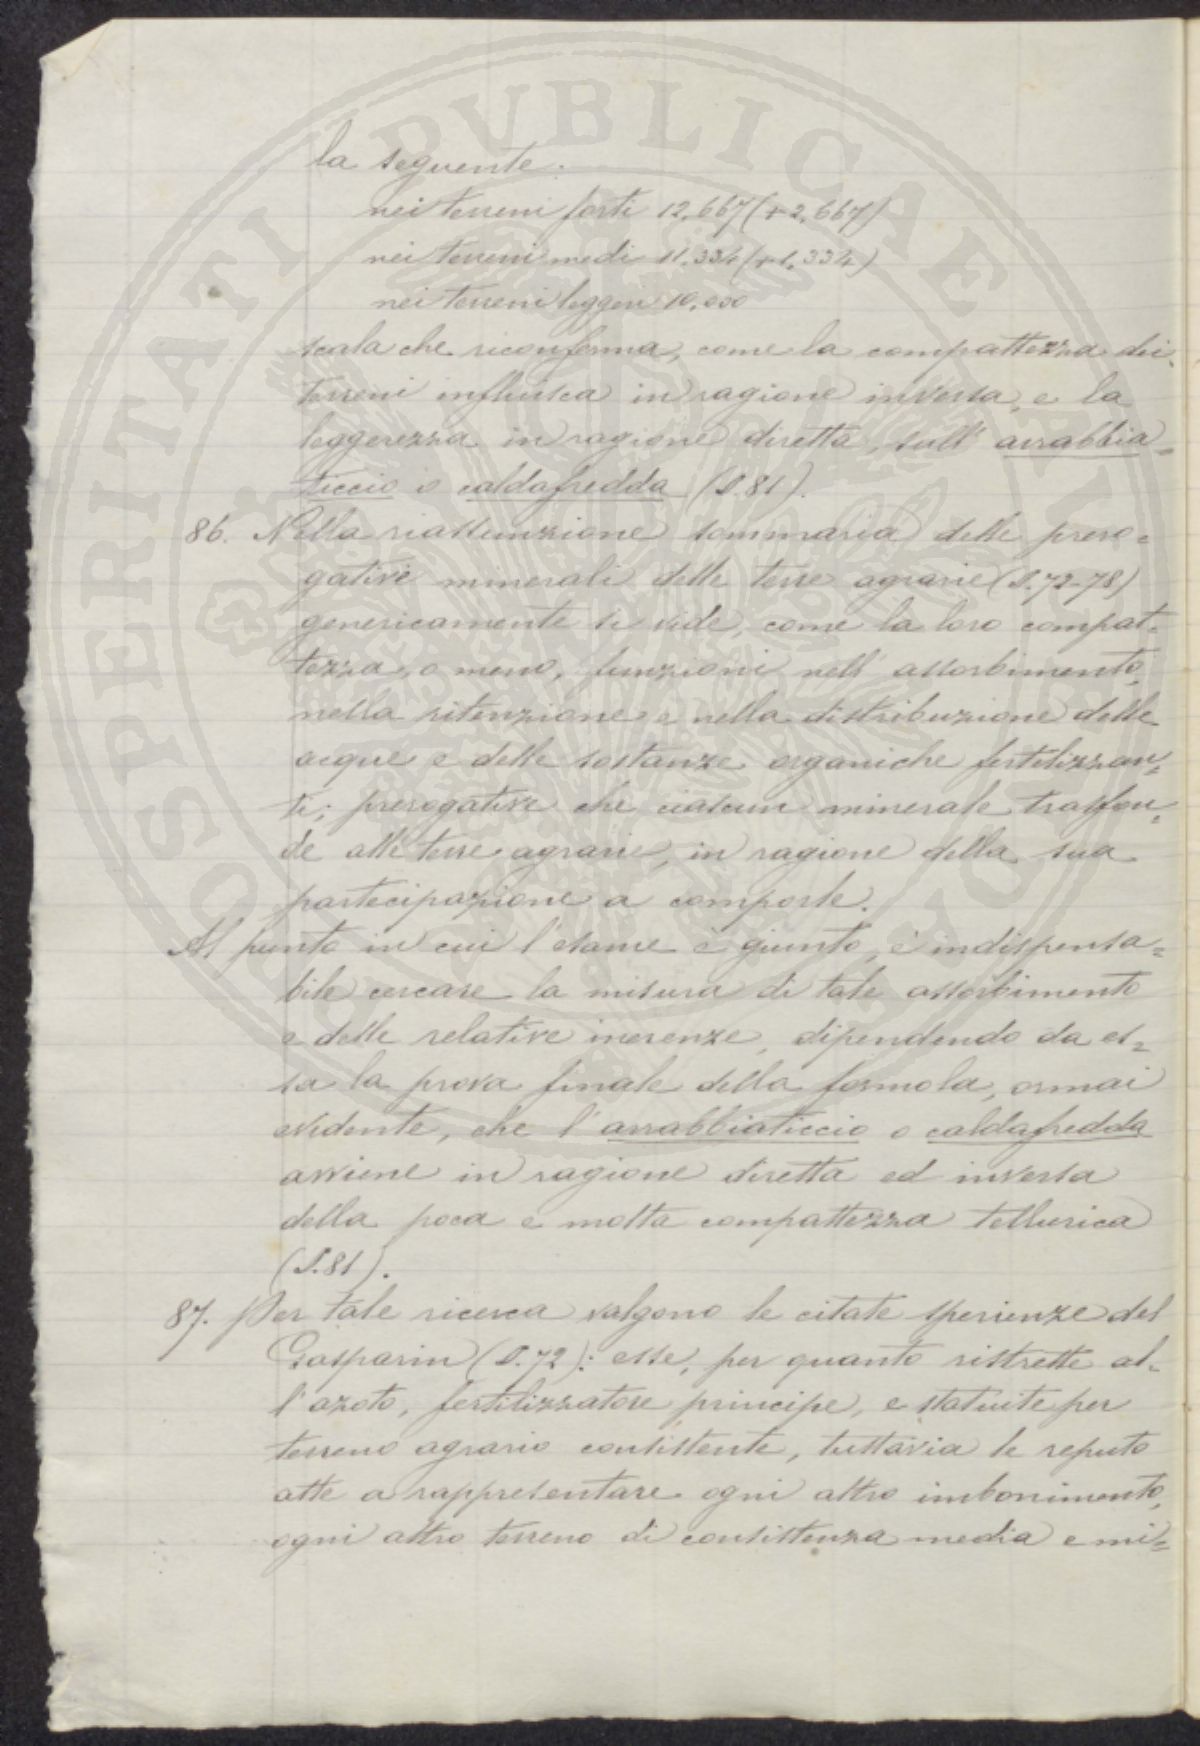 la seguente:
nei terreni forti 12,667 (+2,667)
nei terreni medi 11.334 (+1,334)
nei terreni leggeri 10,000
scala che riconferma, come la compattezza dei
terreni influisca in ragione inversa, e la
leggerezza in ragione diretta, sull' arrabbia=
ticcio o caldafredda (§.81).
86. Nella riassunzione sommaria delle prero=
gative minerali delle terre agrarie (§.72-78)
genericamente si vide, come la loro compat=
tezza, o meno, funzioni nell' assorbimento,
nella ritenzione e nella distribuzione delle
acque e delle sostanze organiche fertilizzan=
ti; prerogative che ciascun minerale trasfon=
de alle terre agrarie, in ragione della sua
partecipazione a comporle.
Al punto in cui l'esame è giunto, è indispensa=
bile cercare la misura di tale assorbimento
e delle relative inerenze, dipendendo da es=
sa la prova finale della formola, ormai
evidente, che l' arrabbiaticcio o caldafredda
avviene in ragione diretta ed inversa
della poca e molta compattezza tellurica
(§.81).
87. Per tale ricerca valgono le citate sperienze del
Gasparin (§.72): esse, per quanto ristrette al=
l'azoto, fertilizzatore principe, e statuite per
terreno agrario consistente, tuttavia le reputo
atte a rappresentare ogni altro imbonimento,
ogni altro terreno di consistenza media e mi=
SOSPERITATI PVBLICAE